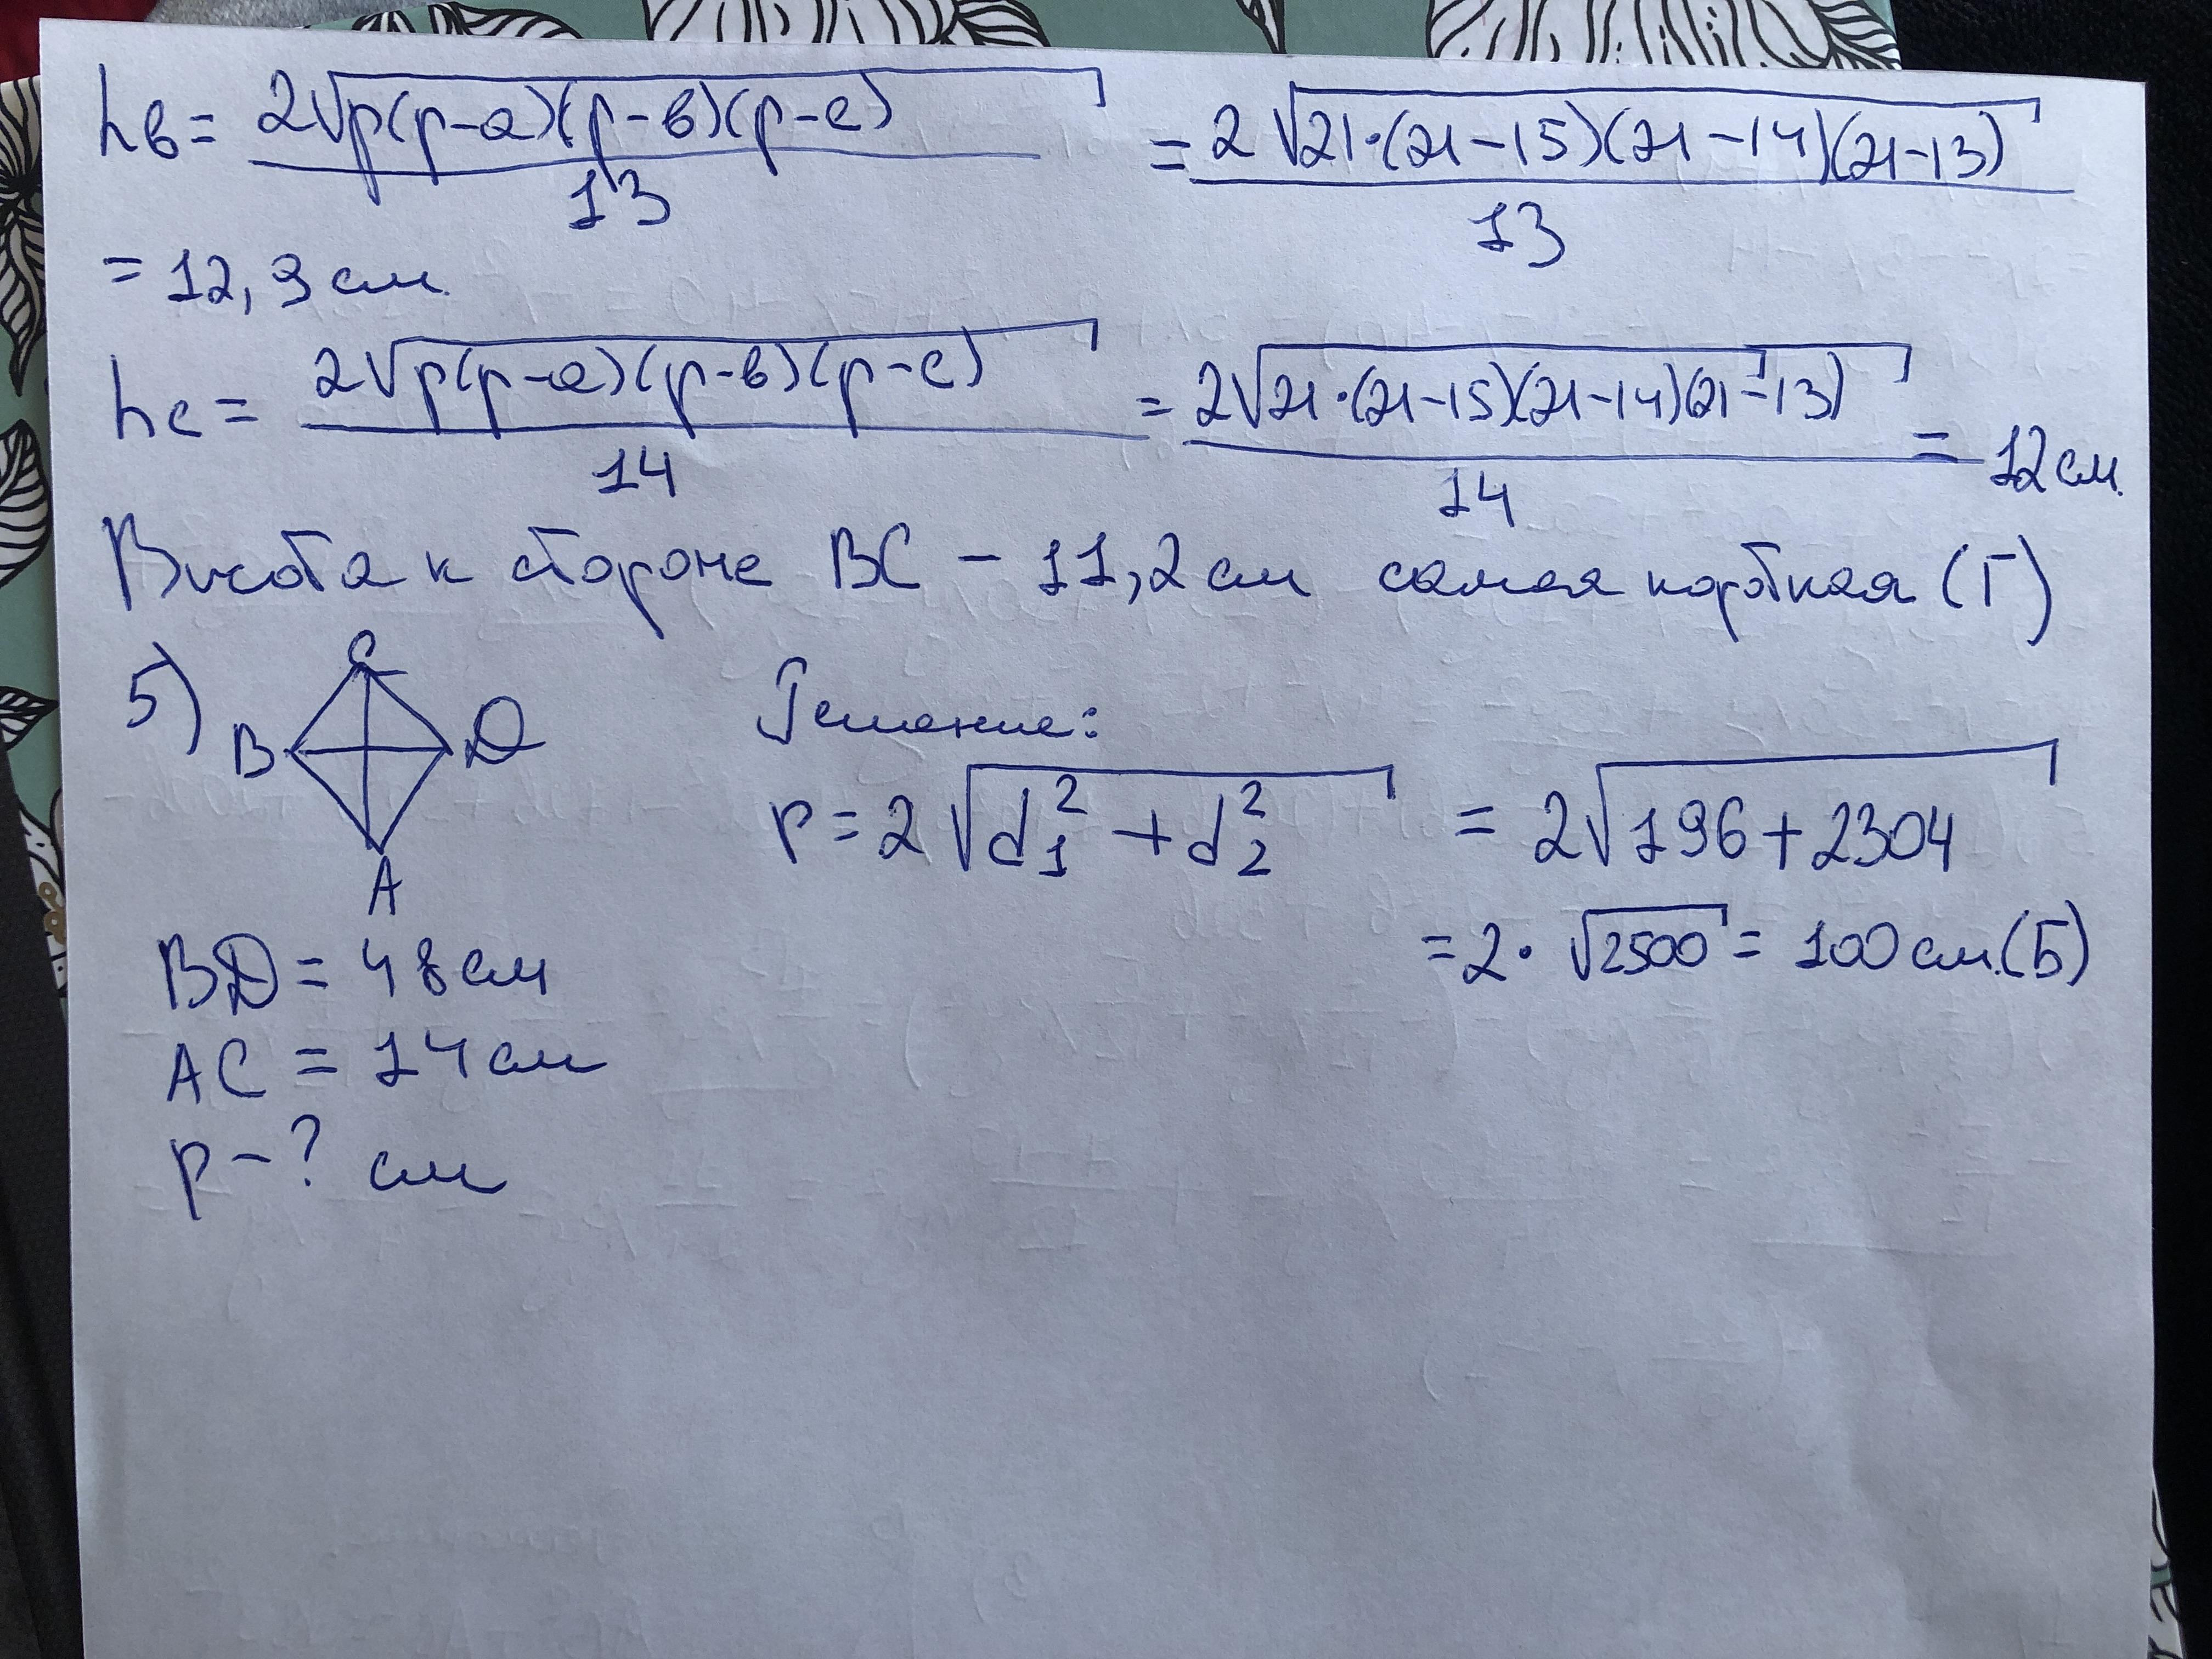 hв = 2√p(p-a)(p-в)(p-c) / 13 = 2√21·(21-15)(21-14)(21-13) / 13
= 12,9 см.
hc = 2√p(p-a)(p-в)(p-c) / 14 = 2√21·(21-15)(21-14)(21-13) / 14 = 12 см.
Висота к стороне BC - 11,2 см самая короткая (Г)
5) C B D A Решение:
p = 2√d₁² + d₂² = 2√196 + 2304
= 2 · √2500 = 100 см. (Б)
BD = 48 см
AC = 14 см
p - ? см